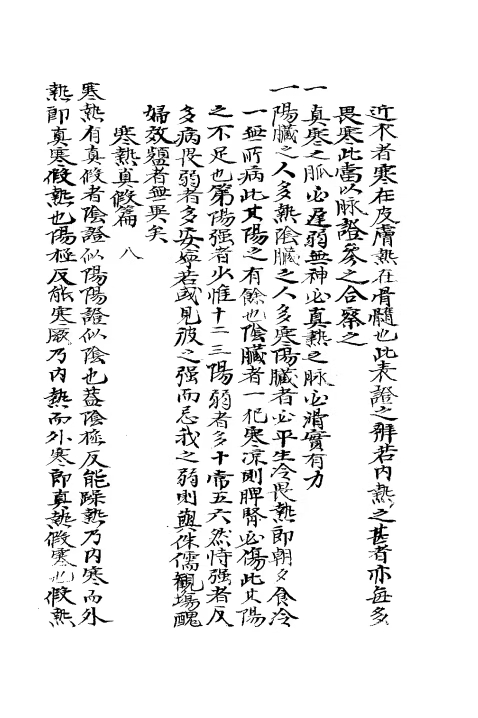 近衣者寒在皮膚熱在骨髓也此表證之辨若内熱之甚者亦每多
畏寒此當以脉證參之合察之
一真寒之脈必遲弱無神必真熱之脉必滑實有力
一陽臟之人多熱陰臟之人多寒陽臟者必平生冷畏熱即朝夕食冷
一無所病此其陽之有餘也陰臟者一犯寒凉則脾腎必傷此其陽
之不足也第陽强者少惟十二三陽弱者多十常五六然恃强者反
多病畏弱者多安寧若或見彼之强而忌我之弱則與侏儒觀塲醜
婦效顰者無異矣
寒熱真假篇 八
寒熱有真假者陰證似陽陽證似陰也蓋陰極反能躁熱乃内寒而外
熱即真寒假熱也陽極反能寒厥乃内熱而外寒即真熱假寒也假熱